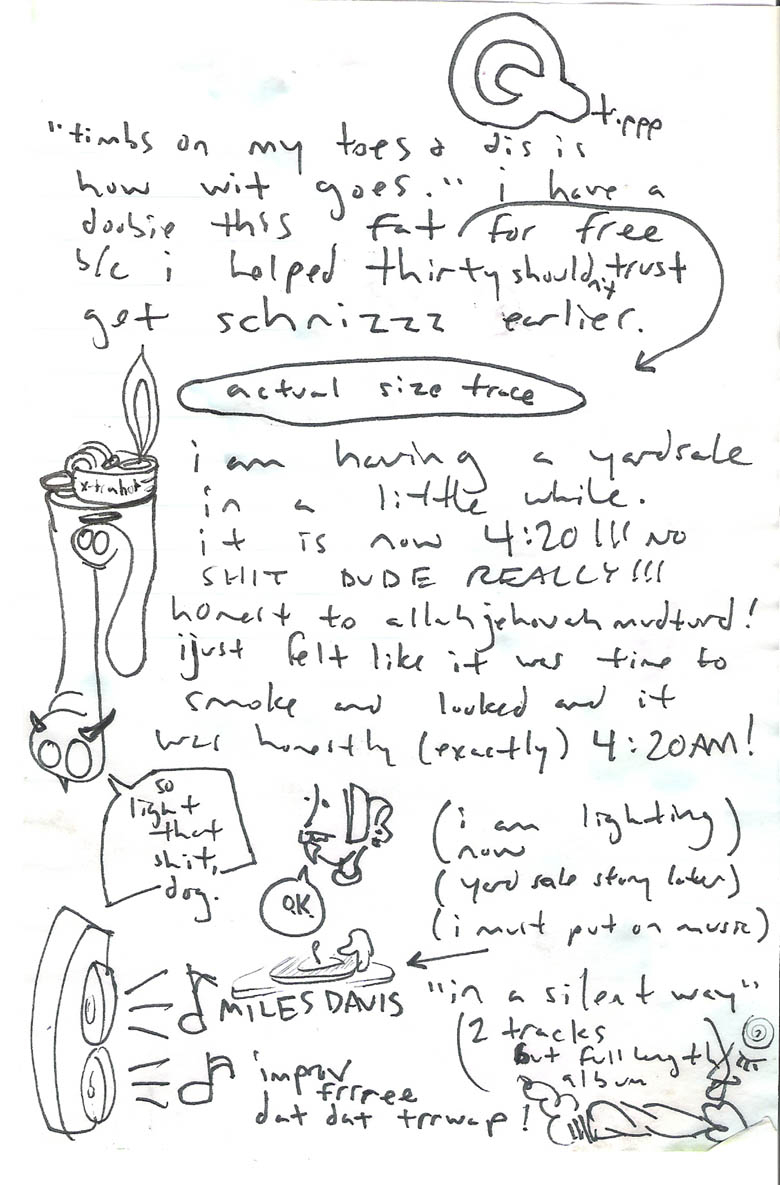 Q
tippp
"timbs on my toes & dis is
how wit goes." i have a
doobie this fat for free
b/c i helped thirtyshouldn't trust
get schnizzz earlier.
actual size trace
i am having a yardsale
x-tra hot
in a little while.
it is now 4:20!!! NO
SHIT DUDE REALLY!!!
honest to allahjehovahmudturd!
ijust felt like it was time to
smoke and looked and it
was honestly (exactly) 4:20AM!
so
light
that
shit,
dog.
O.K.
(i am lighting)
now
(yard sale story later)
(i must put on music)
MILES DAVIS "in a silent way"
(2 tracks
but full length
album
improv
frrree
dat dat trrwap!